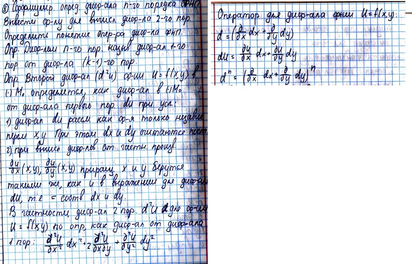 ② Сформулир. опред. диф-ала n-го порядка ФНП.
Вывести ф-лу для вычисл. диф-ла 2-го пор.
Определите понятие опер-ра диф-ла ФНП.
Опр. Диф-лом n-го пор. назыв. диф-ал 1-го
пор. от диф-ла (k-1)-го пор.
Опр. Второй диф-ал (d²u) ф-ии U=f(x,y) в
(·) M₀ определяется, как диф-ал в (·) M₀
от диф-ала первого пор. du при усл:
1) диф-ал du рассм. как ф-я только независ.
x,y. При этом dx и dy считаются
2) при вычисл. диф-лов от частн. произв.
∂u/∂x (x,y), ∂u/∂y (x,y) приращ. x и y берутся
такими же, как и в выражении для диф-ла
du, т.е. = соотв. dx и dy.
В частности диф-ал 2 пор. d²U для ф-ии
U=f(x,y) по опр. как диф-ал от диф-ала
1 пор: ∂²U/∂x² dx² + 2 ∂²U/∂x∂y + ∂²U/∂y² dy²
Оператор для диф-ала ф-ии U=f(x,y).
d = (∂/∂x dx + ∂/∂y dy)
du = ∂u/∂x dx + ∂u/∂y dy
dⁿ = (∂/∂x dx + ∂/∂y dy)ⁿ